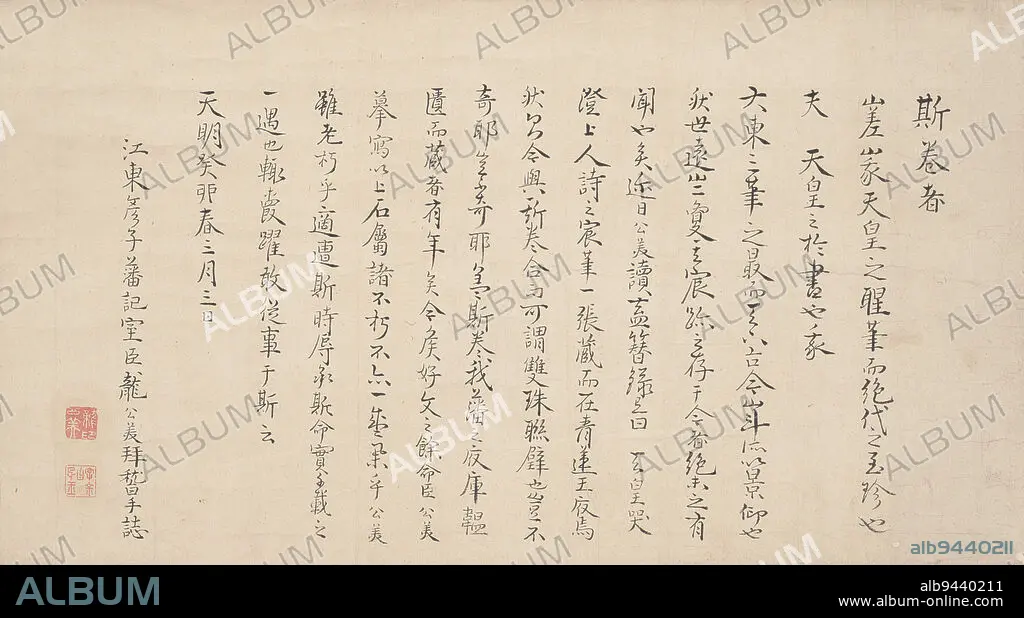 斯卷者
嵯峨天皇之宸筆而絶代之至珍也
夫 天皇之於書也我
大東三筆之最而天下古今山斗所以景仰也
然世遠宸跡之存于今者絶未之有
聞也矣近日公美讀盍簪録曰 天皇哭
澄上人詩之宸筆一張藏而在青蓮王府焉
然今與斯卷合可謂雙珠聯璧也豈不
奇耶豈不奇耶斯卷我藩之府庫韞
匱而藏者有年矣今侯好文之餘命臣公美
摹寫以上石屬諸不朽不亦一乎公美
雖老朽乎適遭斯時辱承斯命實千載之
一遇也輒躍敢從事于斯云
天明癸卯春三月三日
江東彦子藩記室臣龍公美拜稽手誌
alb9440211
ALBUM
alb9440211
www.album-online.com